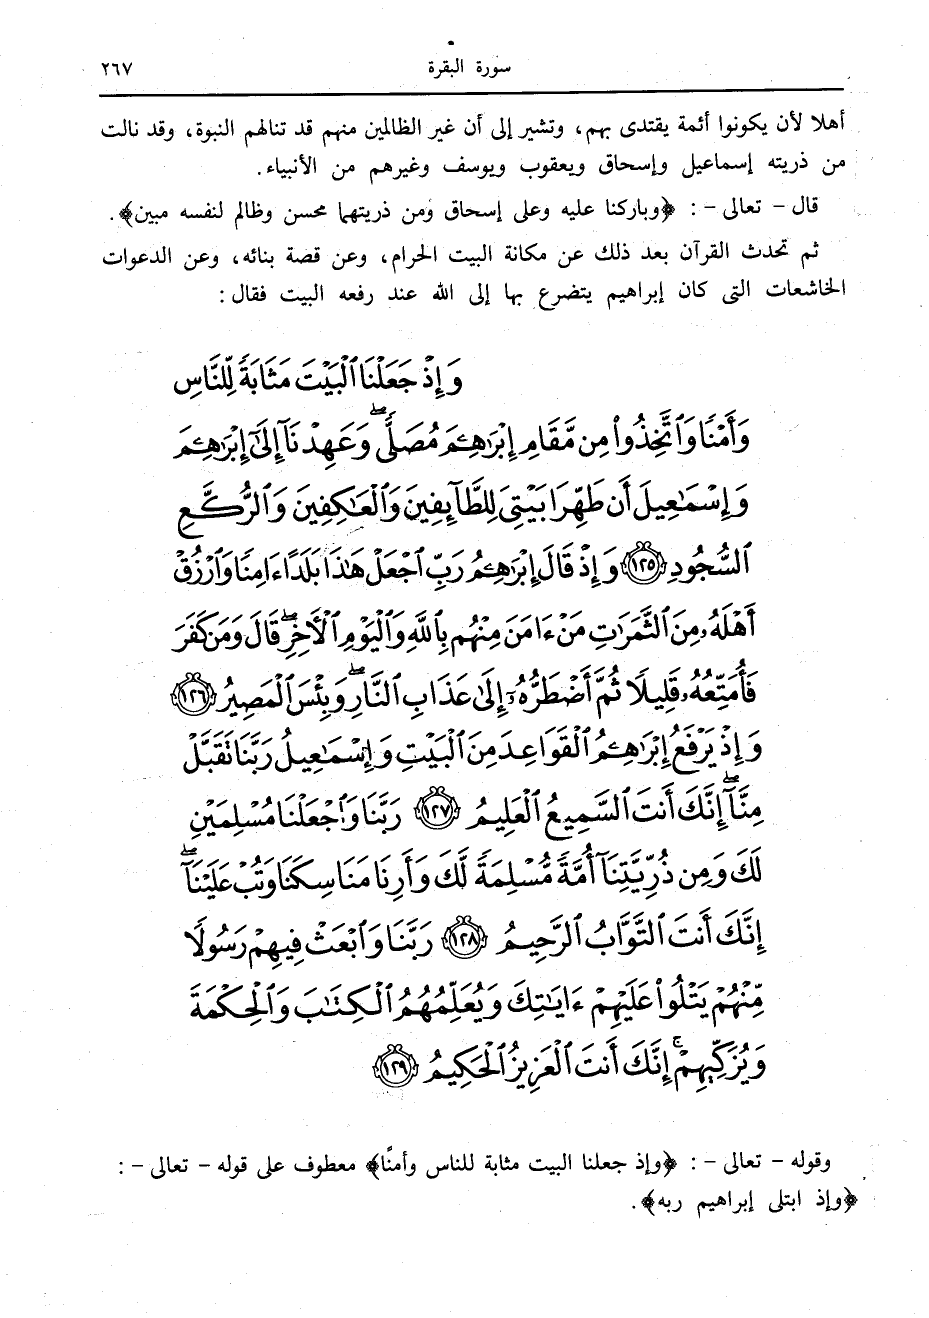 سورة البقرة ٢٦٧
أهلا لأن يكونوا أئمة يقتدى بهم، وتشير إلى أن غير الظالمين منهم قد تنالهم النبوة، وقد نالت
من ذريته إسماعيل وإسحاق ويعقوب ويوسف وغيرهم من الأنبياء.
قال – تعالى –: ﴿وباركنا عليه وعلى إسحاق ومن ذريتهما محسن وظالم لنفسه مبين﴾.
ثم تحدث القرآن بعد ذلك عن مكانة البيت الحرام، وعن قصة بنائه، وعن الدعوات
الخاشعات التى كان إبراهيم يتضرع بها إلى الله عند رفعه البيت فقال:
وَإِذْ جَعَلْنَا ٱلْبَيْتَ مَثَابَةً لِّلنَّاسِ
وَأَمْنًا وَٱتَّخِذُوا۟ مِن مَّقَامِ إِبْرَٰهِـۧمَ مُصَلًّى ۖ وَعَهِدْنَآ إِلَىٰٓ إِبْرَٰهِـۧمَ
وَإِسْمَـٰعِيلَ أَن طَهِّرَا بَيْتِىَ لِلطَّآئِفِينَ وَٱلْعَـٰكِفِينَ وَٱلرُّكَّعِ
ٱلسُّجُودِ ١٢٥ وَإِذْ قَالَ إِبْرَٰهِـۧمُ رَبِّ ٱجْعَلْ هَـٰذَا بَلَدًا ءَامِنًا وَٱرْزُقْ
أَهْلَهُۥ مِنَ ٱلثَّمَرَٰتِ مَنْ ءَامَنَ مِنْهُم بِٱللَّهِ وَٱلْيَوْمِ ٱلْـَٔاخِرِ ۖ قَالَ وَمَن كَفَرَ
فَأُمَتِّعُهُۥ قَلِيلًا ثُمَّ أَضْطَرُّهُۥٓ إِلَىٰ عَذَابِ ٱلنَّارِ ۖ وَبِئْسَ ٱلْمَصِيرُ ١٢٦
وَإِذْ يَرْفَعُ إِبْرَٰهِـۧمُ ٱلْقَوَاعِدَ مِنَ ٱلْبَيْتِ وَإِسْمَـٰعِيلُ رَبَّنَا تَقَبَّلْ
مِنَّآ ۖ إِنَّكَ أَنتَ ٱلسَّمِيعُ ٱلْعَلِيمُ ١٢٧ رَبَّنَا وَٱجْعَلْنَا مُسْلِمَيْنِ
لَكَ وَمِن ذُرِّيَّتِنَآ أُمَّةً مُّسْلِمَةً لَّكَ وَأَرِنَا مَنَاسِكَنَا وَتُبْ عَلَيْنَآ ۖ
إِنَّكَ أَنتَ ٱلتَّوَّابُ ٱلرَّحِيمُ ١٢٨ رَبَّنَا وَٱبْعَثْ فِيهِمْ رَسُولًا
مِّنْهُمْ يَتْلُوا۟ عَلَيْهِمْ ءَايَـٰتِكَ وَيُعَلِّمُهُمُ ٱلْكِتَـٰبَ وَٱلْحِكْمَةَ
وَيُزَكِّيهِمْ ۚ إِنَّكَ أَنتَ ٱلْعَزِيزُ ٱلْحَكِيمُ ١٢٩
وقوله – تعالى –: ﴿وإذ جعلنا البيت مثابة للناس وأمنًا﴾ معطوف على قوله – تعالى –:
﴿وإذ ابتلى إبراهيم ربه﴾.